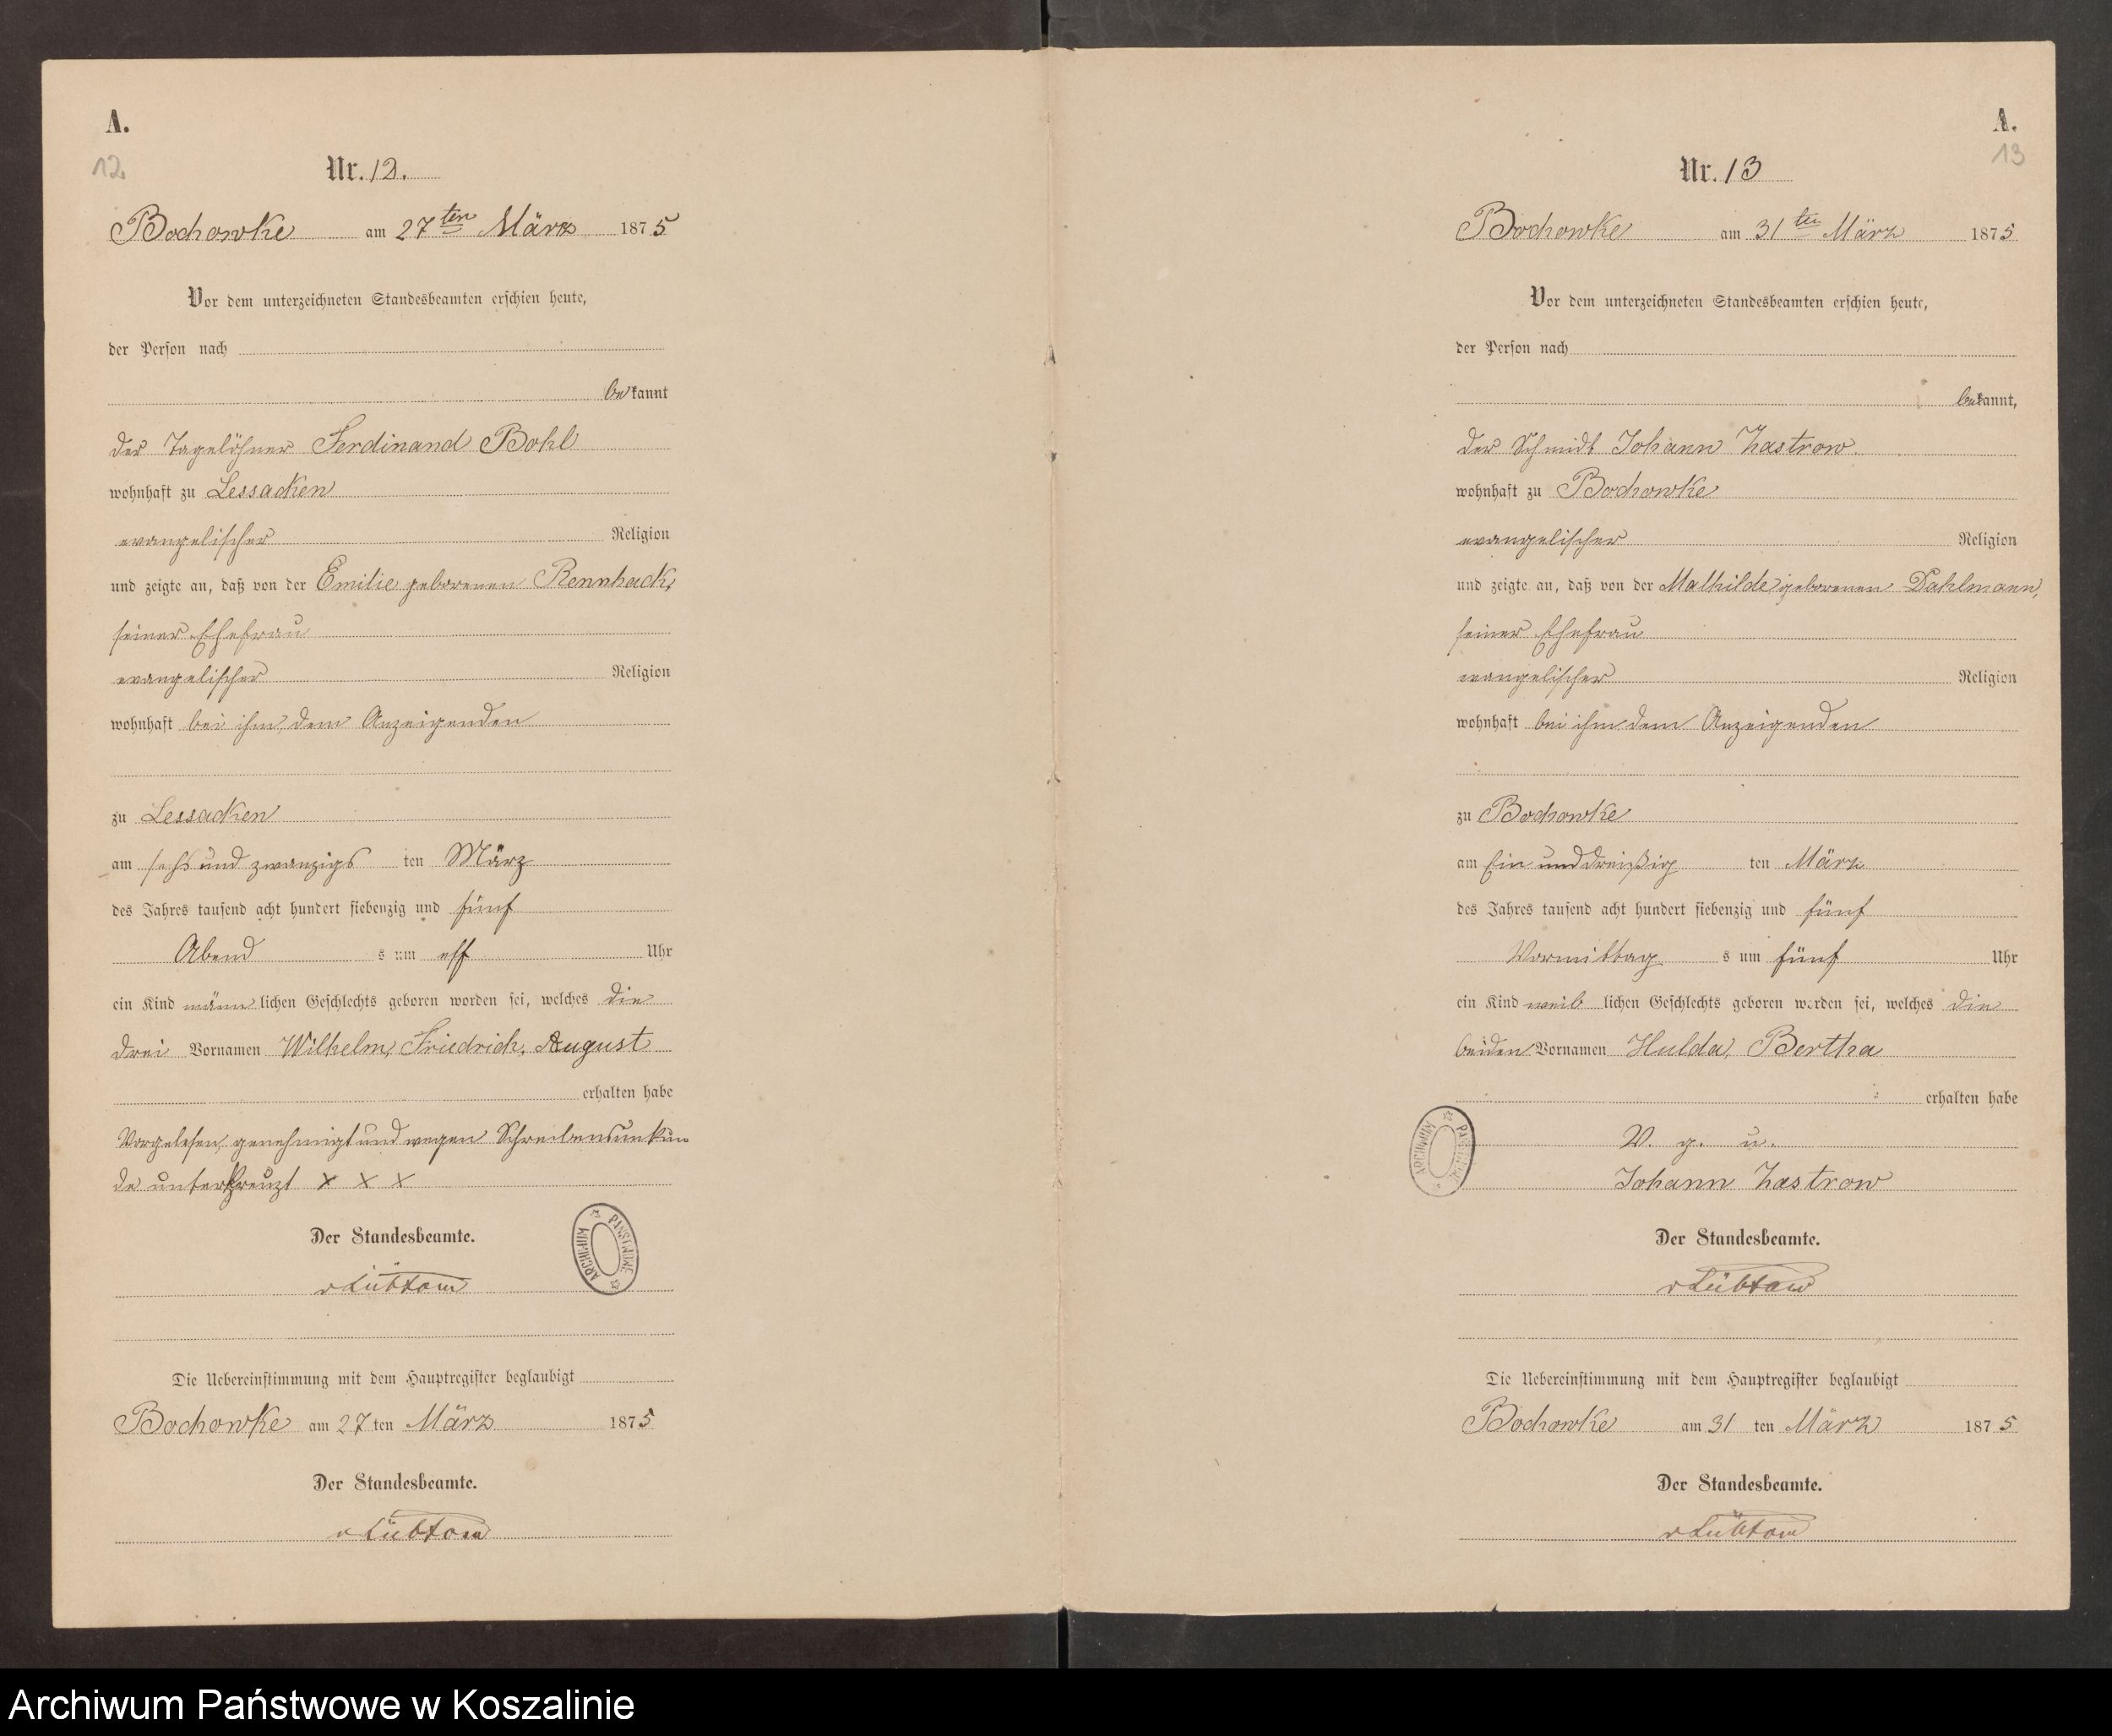 A.
12.
Nr. 12.
Bochowke am 27ten März 1875
Vor dem unterzeichneten Standesbeamten erschien heute,
der Person nach
bekannt
der Tagelöhner Ferdinand Bohl
wohnhaft zu Lessacken
evangelischer Religion
und zeigte an, daß von der Emilie geborenen Rennhack,
seiner Ehefrau
evangelischer Religion
wohnhaft bei ihm, dem Anzeigenden
zu Lessacken
am sechs und zwanzigs ten März
des Jahres tausend acht hundert siebenzig und fünf
Abend s um elf Uhr
ein Kind männlichen Geschlechts geboren worden sei, welches die
drei Vornamen Wilhelm, Friedrich, August
erhalten habe
Vorgelesen, genehmigt und wegen Schreibensunkun
de unterkreuzt × × ×
Der Standesbeamte.
v Lübtow
ARCHIWUM PAŃSTWOWE
Die Uebereinstimmung mit dem Hauptregister beglaubigt
Bochowke am 27 ten März 1875
Der Standesbeamte.
v Lübtow
A.
13
Nr. 13
Bochowke am 31ten März 1875
Vor dem unterzeichneten Standesbeamten erschien heute,
der Person nach
bekannt,
der Schmidt Johann Zastrow
wohnhaft zu Bochowke
evangelischer Religion
und zeigte an, daß von der Mathilde geborenen Dahlmann,
seiner Ehefrau
evangelischer Religion
wohnhaft bei ihm dem Anzeigenden
zu Bochowke
am Ein und dreißig ten März
des Jahres tausend acht hundert siebenzig und fünf
Vormittag s um fünf Uhr
ein Kind weiblichen Geschlechts geboren worden sei, welches die
beiden Vornamen Hulda, Bertha
erhalten habe
V. g. u.
Johann Zastrow
ARCHIWUM PAŃSTWOWE
Der Standesbeamte.
v Lübtow
Die Uebereinstimmung mit dem Hauptregister beglaubigt
Bochowke am 31 ten März 1875
Der Standesbeamte.
v Lübtow
Archiwum Państwowe w Koszalinie